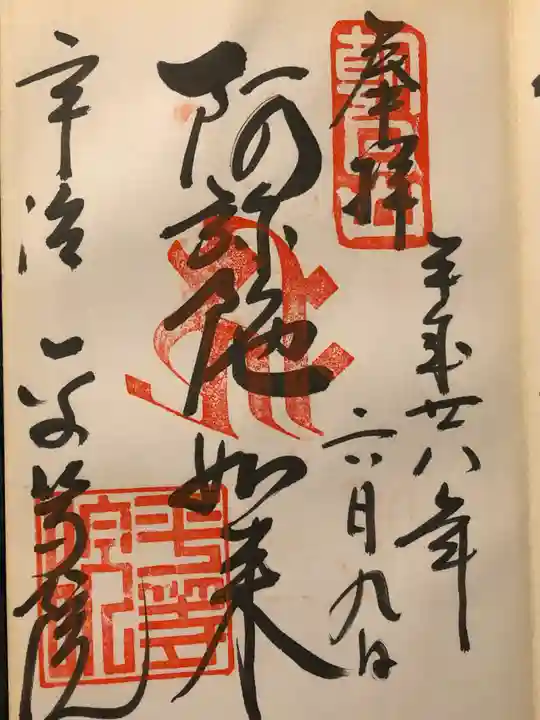 奉拝
朝日山
平成廿八年
六月九日
阿弥陀如来
宇治 平等院